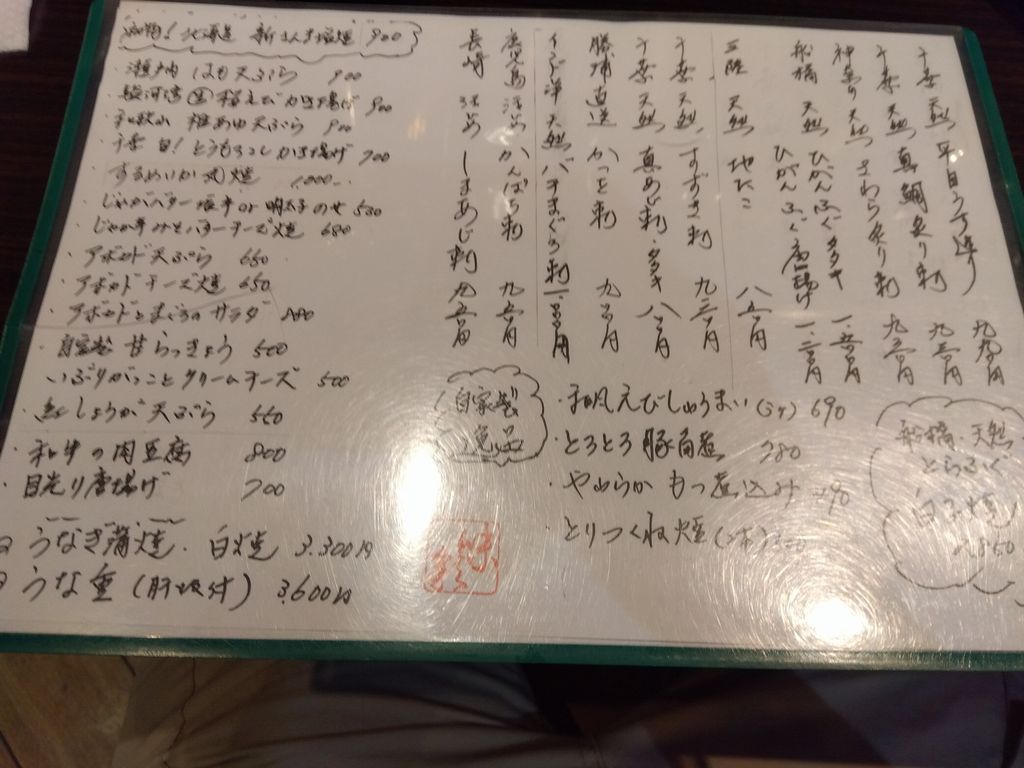 北海道 新さんま塩焼 900
瀬戸内 はも天ぷら 900
駿河湾 桜えびかき揚げ 900
和歌山 稚あゆ天ぷら 900
千葉 旬! とうもろこしかき揚げ 700
するめいか丸焼 1,000
じゃがバター 塩辛or明太子のせ 530
じゃが辛みそバターチーズ焼 680
アボカド天ぷら 650
アボカドチーズ焼 650
アボカドとまぐろのサラダ 880
自家製 甘らっきょう 500
いぶりがっことクリームチーズ 500
紅しょうが天ぷら 550
和牛の肉豆腐 800
目光り唐揚げ 700
うなぎ蒲焼・白焼 3,300円
うな重(肝吸付) 3,600円
千葉 天然 平目うす造り 九九〇円
千葉 天然 真鯛炙り刺 九五〇円
天然 さわら炙り刺 九五〇円
船橋 天然 ひがんふぐタタキ
ひがんふぐ唐揚げ
三陸 天然 地だこ 八五〇円
千葉 天然 すずき刺
千葉 天然 真あじ刺・タタキ
勝浦直送 かつお刺
インド洋 天然 バチまぐろ刺
鹿児島 活〆 かんぱち刺 九五〇円
長崎 活〆 しまあじ刺 九五〇円
自家製
逸品
和風えびしゅうまい 690
とろとろ豚角煮
やわらかもつ煮込み
とりつくね焼
船橋・天然
とらふぐ
白子焼